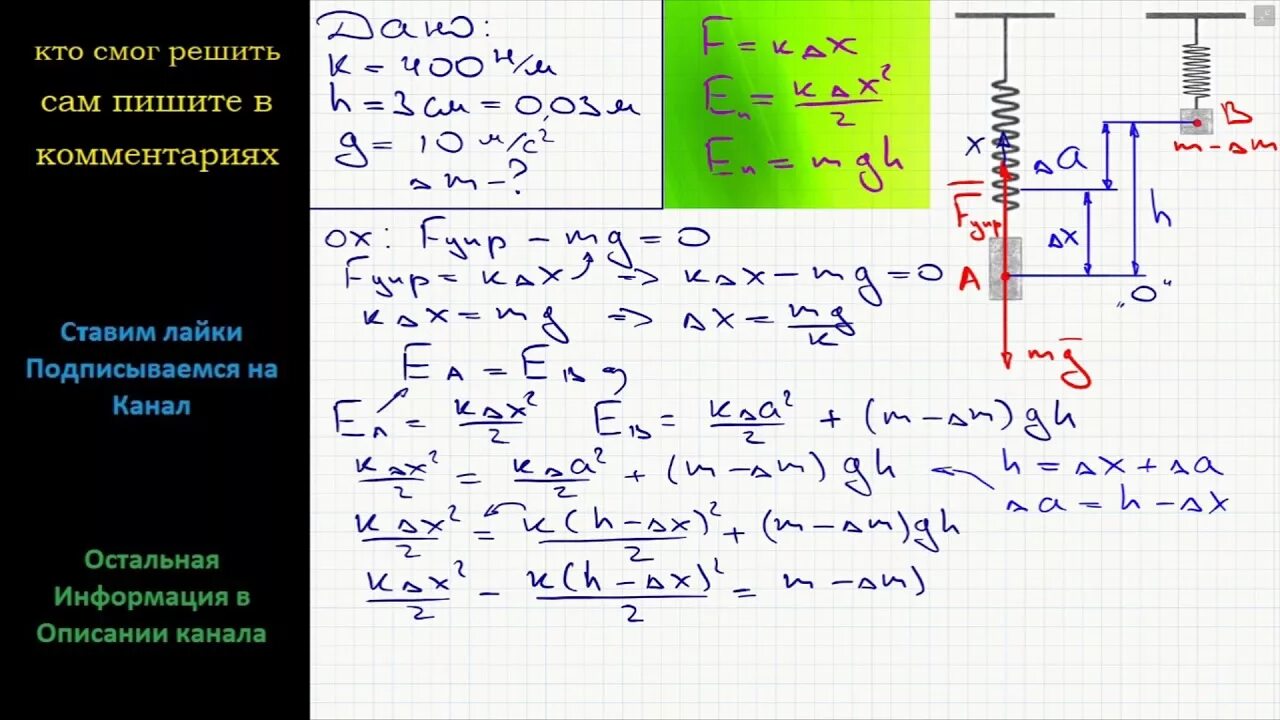 кто смог решить
сам пишите в
комментариях
Ставим лайки
Подписываемся на
Канал
Остальная
Информация в
Описании канала
Дано:
k = 400 Н/м
h = 3 см = 0,03 м
g = 10 м/с²
Δm - ?
F = kΔx
Eп = kΔx²/2
Eп = mgh
x
Fупр
A
mg
Δa
Δx
h
"0"
B
m - Δm
ox: Fупр - mg = 0
Fупр = kΔx => kΔx - mg = 0
kΔx = mg => Δx = mg/k
EA = EB
EA = kΔx²/2 EB = kΔa²/2 + (m - Δm)gh
kΔx²/2 = kΔa²/2 + (m - Δm)gh ← h = Δx + Δa
Δa = h - Δx
kΔx²/2 = k(h - Δx)²/2 + (m - Δm)gh
kΔx²/2 - k(h - Δx)²/2 = m - Δm)